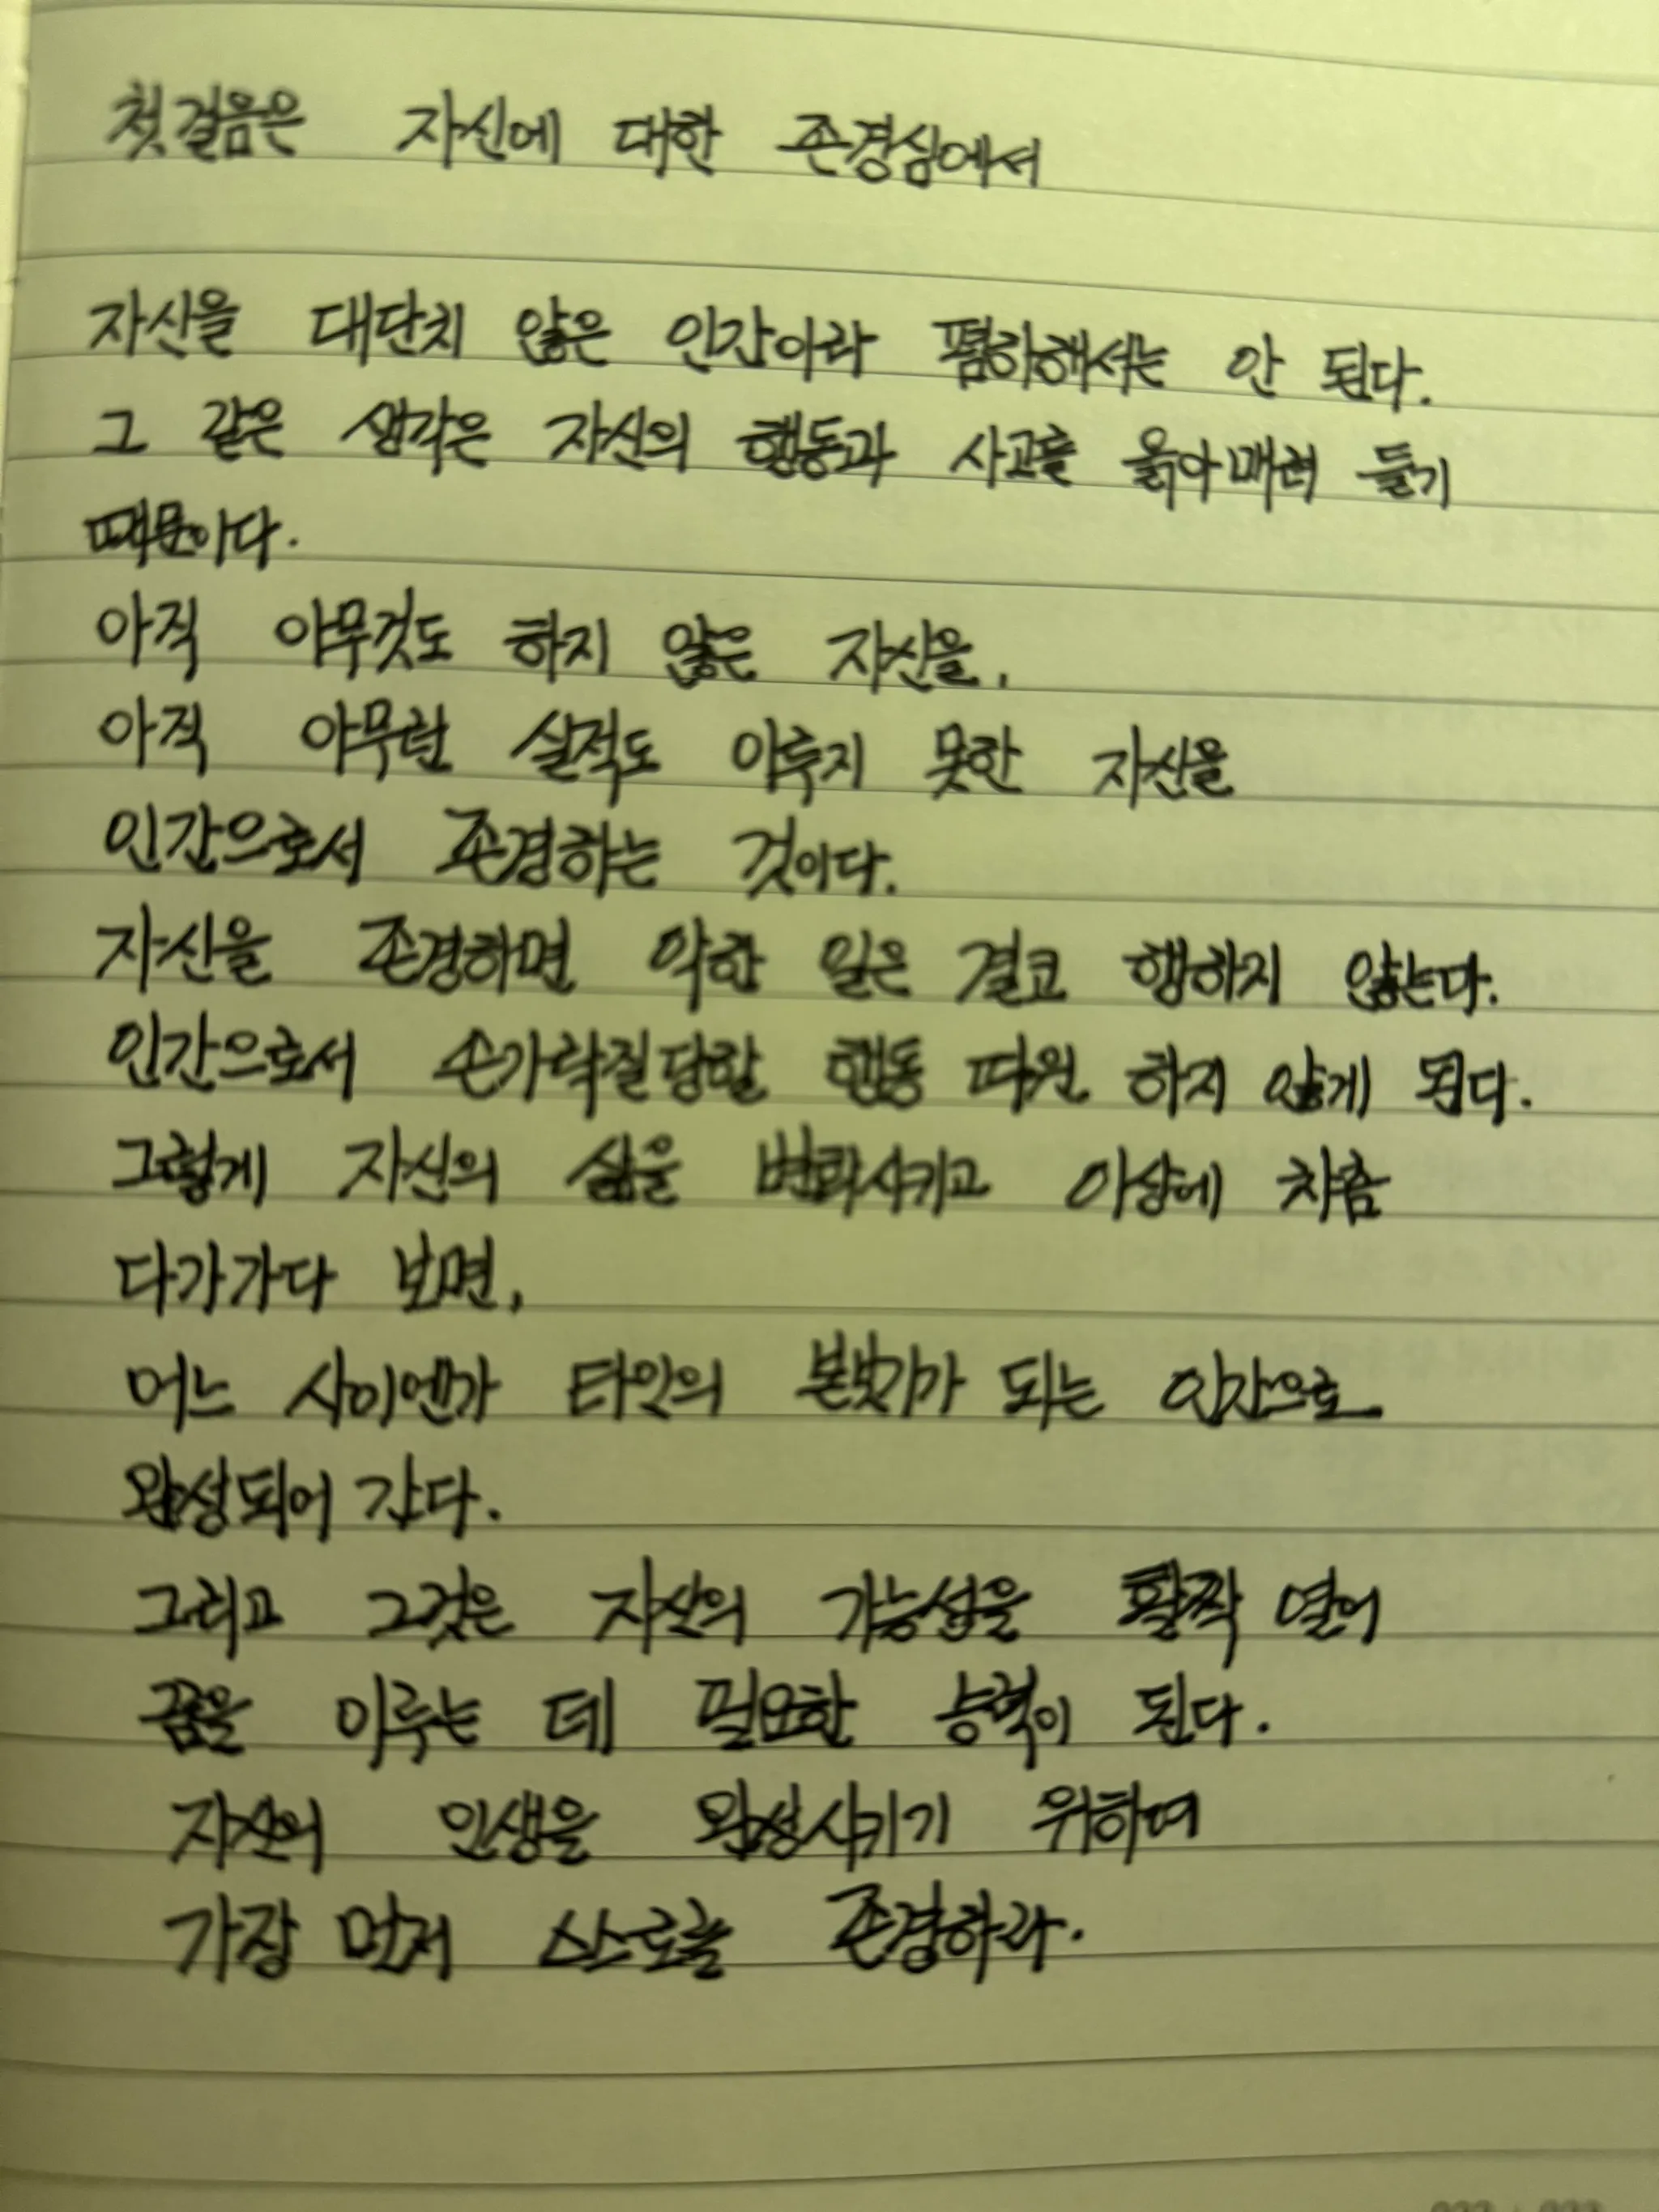 첫걸음은 자신에 대한 존경심에서
자신을 대단치 않은 인간이라 폄하해서는 안 된다.
그 같은 생각은 자신의 행동과 사고를 옭아매려 들기
때문이다.
아직 아무것도 하지 않은 자신을,
아직 아무런 실적도 이루지 못한 자신을
인간으로서 존경하는 것이다.
자신을 존경하면 악한 일은 결코 행하지 않는다.
인간으로서 손가락질당할 행동 따윈 하지 않게 된다.
그렇게 자신의 삶을 변화시키고 이상에 차츰
다가가다 보면,
어느 사이엔가 타인의 본보기가 되는 인간으로
완성되어 간다.
그리고 그것은 자신의 가능성을 활짝 열어
꿈을 이루는 데 필요한 능력이 된다.
자신의 인생을 완성시키기 위하여
가장 먼저 스스로를 존경하라.